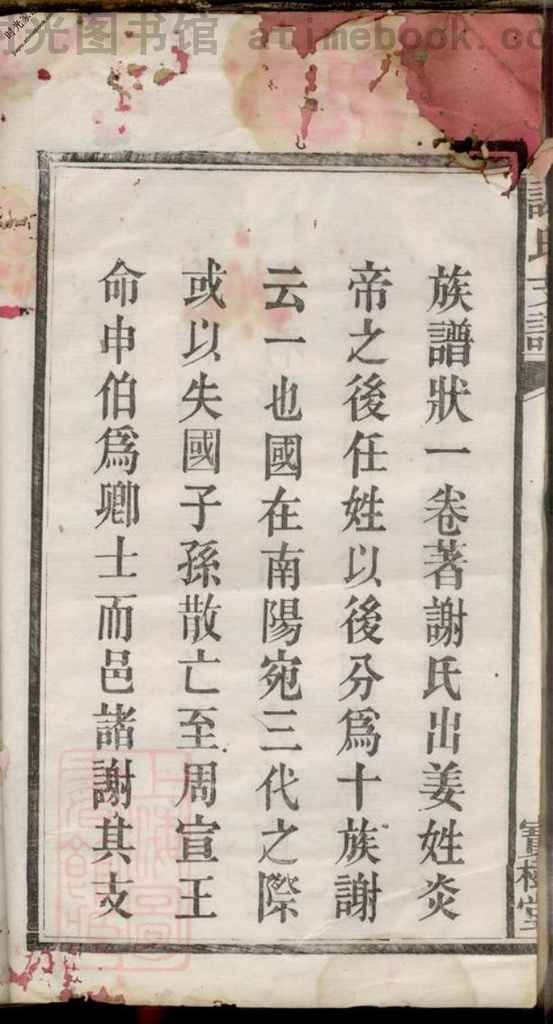 时光图书馆 atimebook.co
謝氏支譜
族譜狀一卷著謝氏出姜姓炎
帝之後任姓以後分爲十族謝
云一也國在南陽宛三代之際
或以失國子孫散亡至周宣王
命申伯爲卿士而邑諸謝其支
寶樹堂